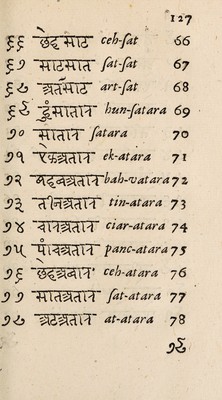 127
६६ छेहसाठ ceh-ſat 66
६७ साठसात ſat-ſat 67
६८ अतसाठ art-ſat 68
६९ hun-ſatara 69
७० सातार ſatara 70
७१ एकअतार ek-atara 71
७२ बहबअतार bah-vatara 72
७३ तीनअतार tin-atara 73
७४ चारअतार ciar-atara 74
७५ पांचअतार panc-atara 75
७६ ceh-atara 76
७७ सातअतार ſat-atara 77
७८ अठअतार at-atara 78
७९